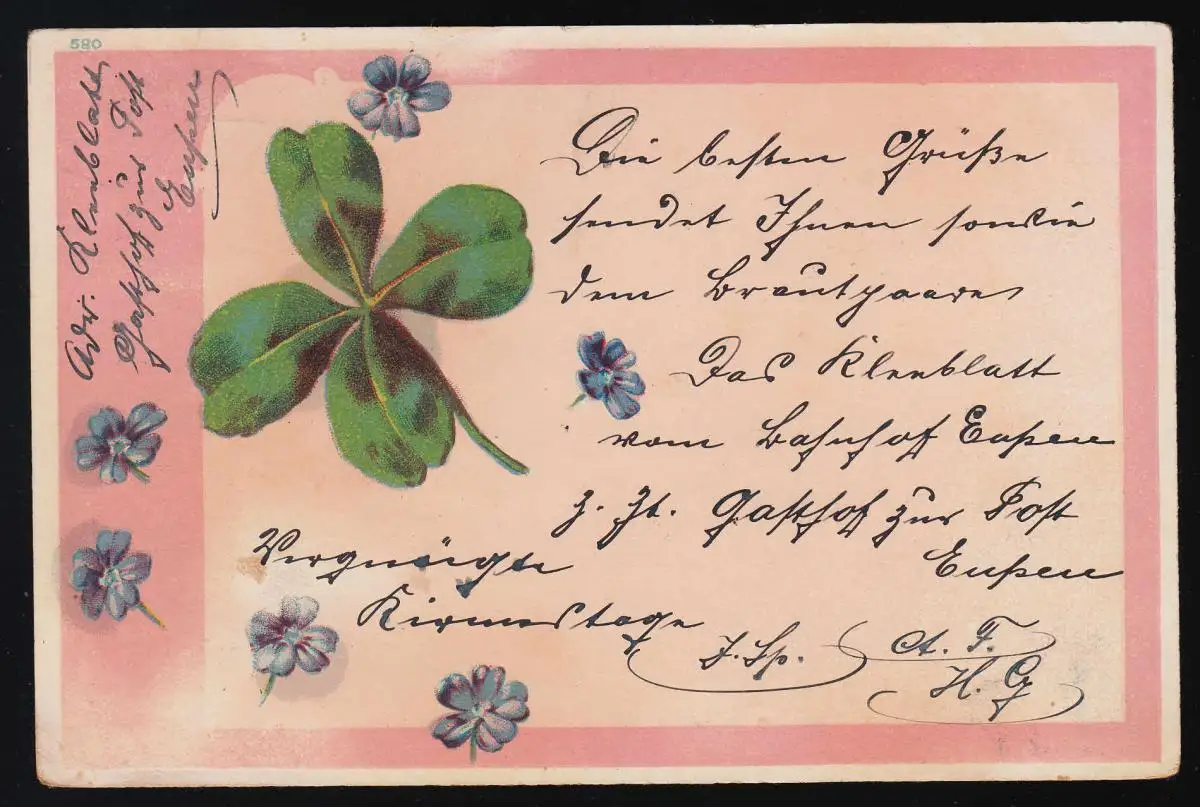 580
Adr. Kleeblatt
Gasthof zur Post
Eupen
Die besten Grüße
sendet Ihnen sowie
dem Brautpaare
Das Kleeblatt
vom Bahnhof Eupen
z. Zt. Gasthof zur Post
Eupen
Vergnügte
Kirmestage
J. Sp.
A. F.
H. G